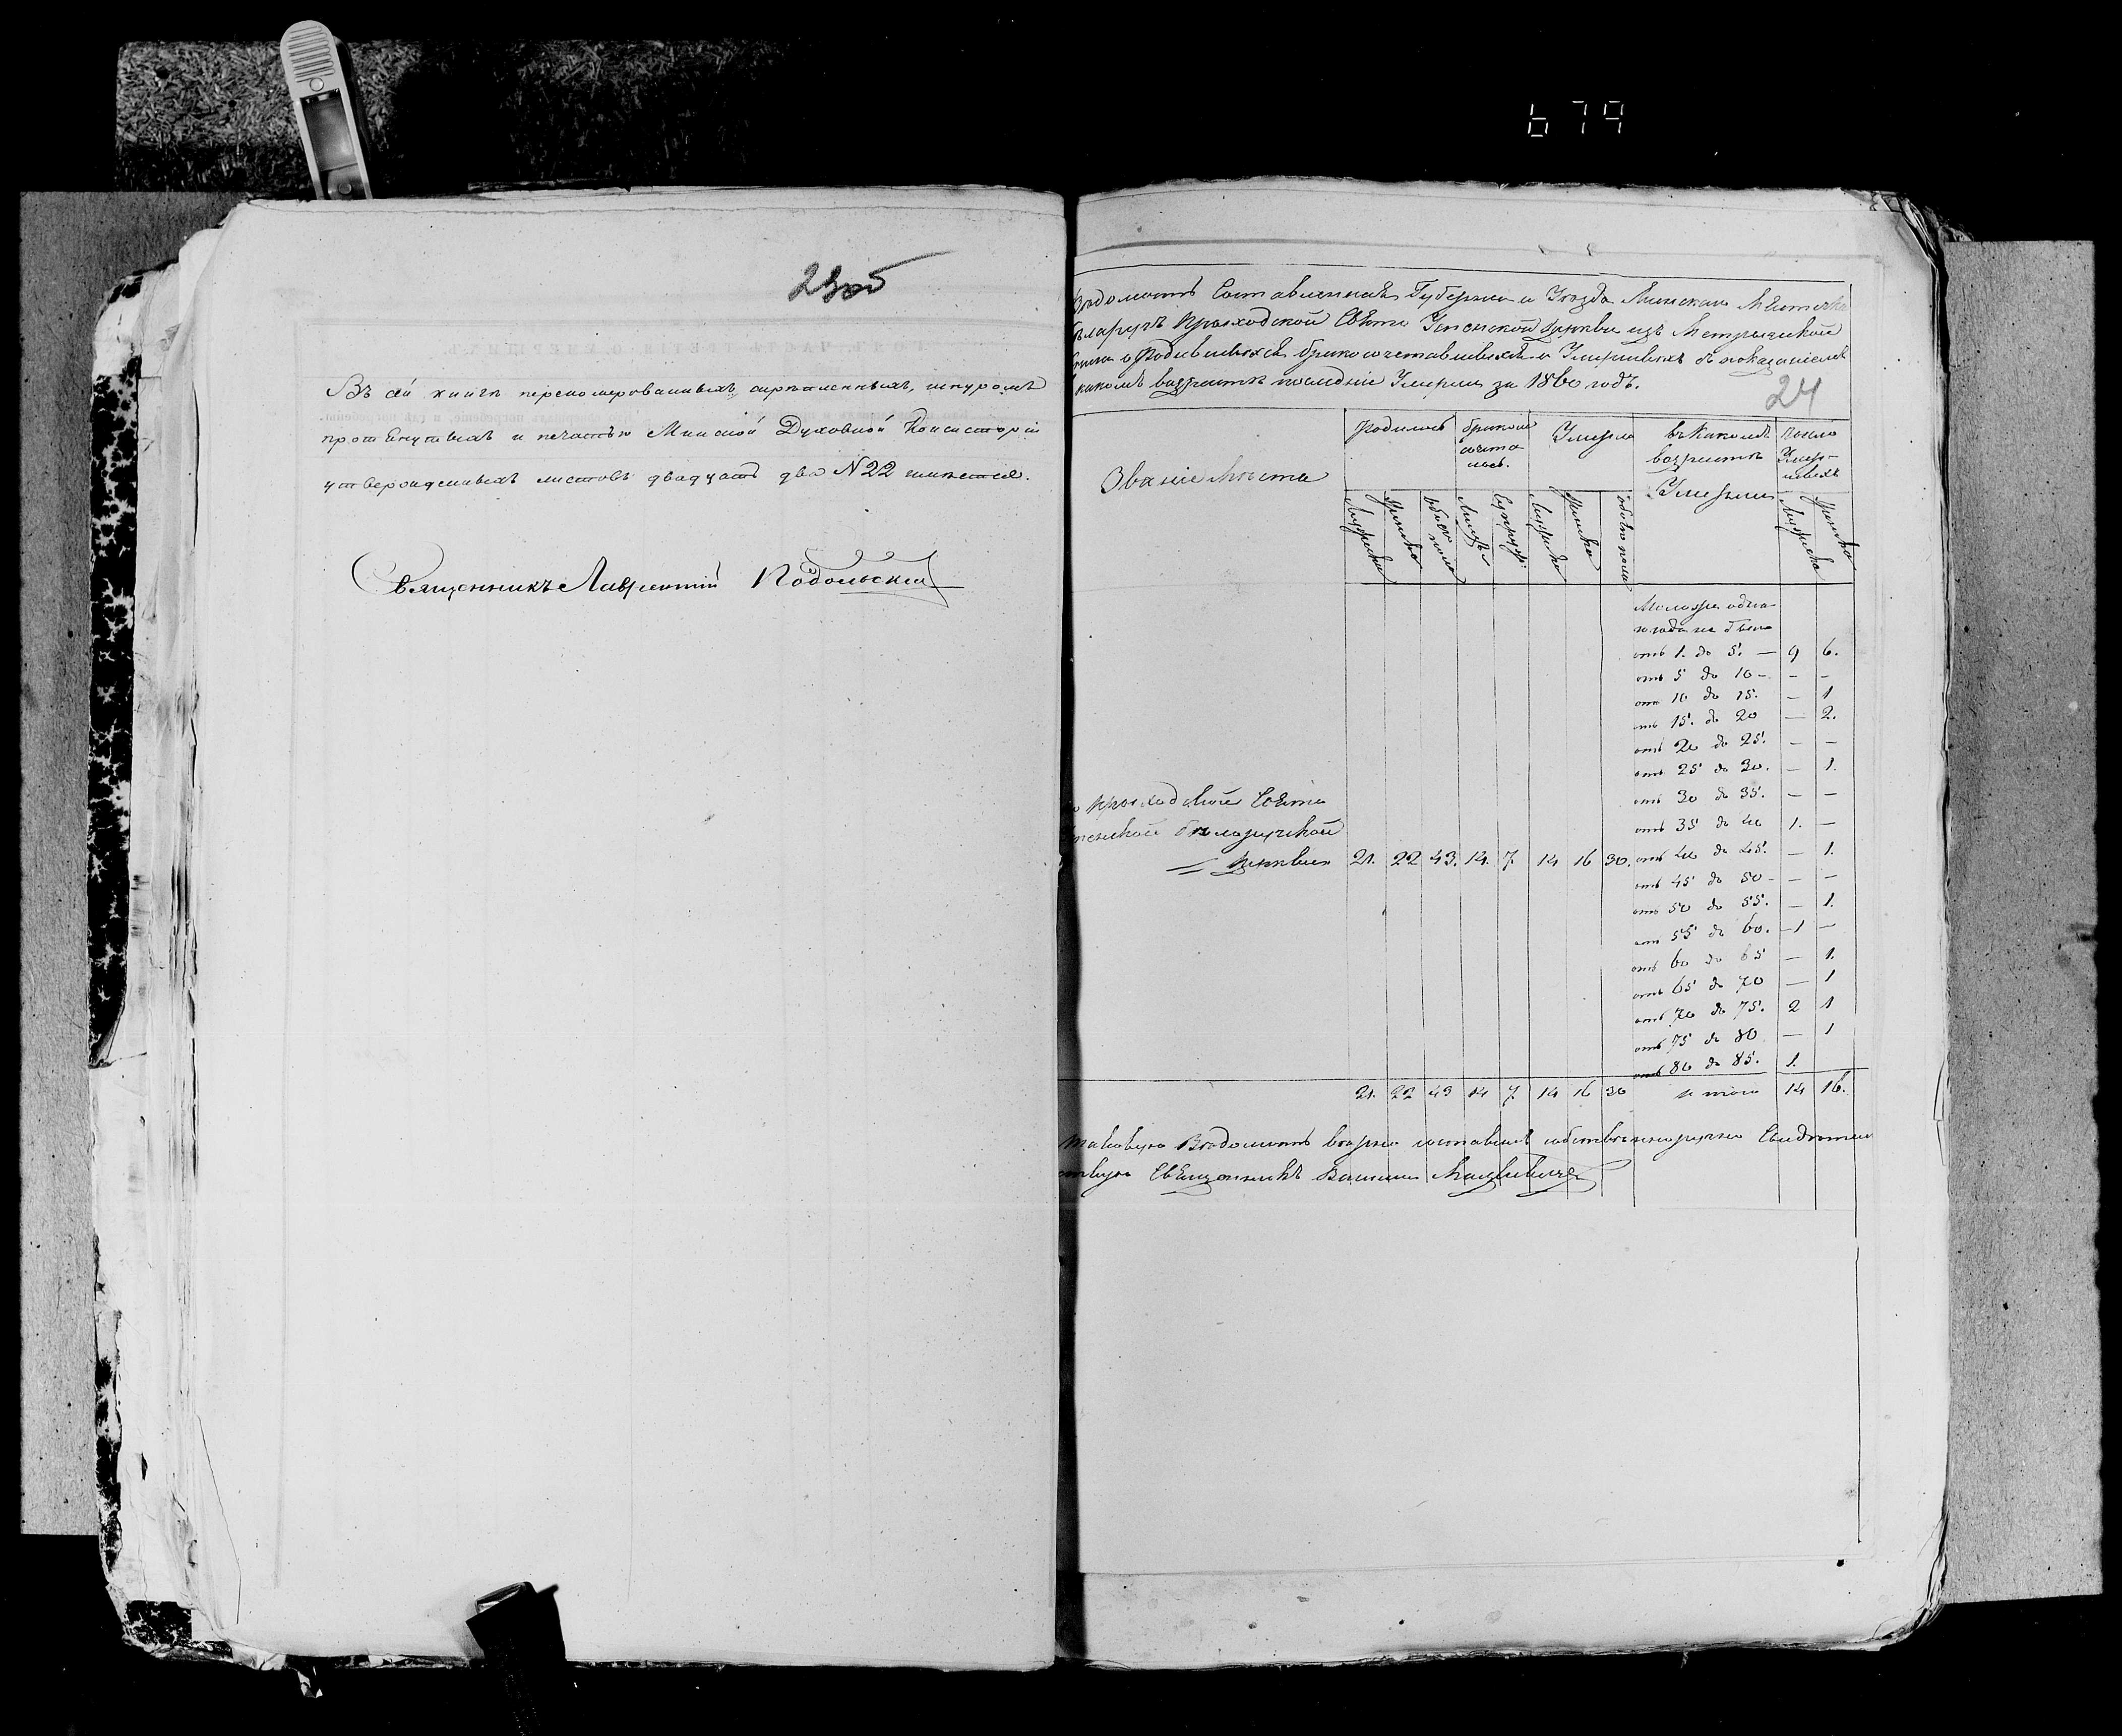 679
23об
Въ сей книгѣ перенумерованныхъ, скрѣпленныхъ, шнуромъ
протянутыхъ и печатью Минской Духовной Консисторіи
утвержденныхъ листовъ двадцать два N 22 имѣется.
Священникъ Лаврентій Подольскій
Вѣдомость Составленная Губерніи и Уѣзда Минскаго Мѣстечка
Бѣларучъ Приходской Свято Успенской Церкви изъ Метрической
Книги о Родившихся бракосочетавшихся и Умершихъ съ показаніемъ
какомъ возрастѣ послѣдніе Умерли за 1860 годъ.
24
Званіе Мѣста
Родилось
бракомъ сочета лось.
Умерло
въ какомъ возрастѣ Умерли
число Умер- шихъ
Мужеска Женска обоего пола Лицъ Супруж. Мужеска Женска обоего пола Мужеска Женска
Моложе одно-
го года не было
отъ 1. до 5. — 9 6.
отъ 5 до 10 - - -
отъ 10 до 15. — 1
отъ 15. до 20 — 2.
отъ 20 до 25. — —
отъ 25 до 30. — 1.
отъ 30 до 35. — —
отъ 35 до 40 1. —
приходской Свято
Белоручской
Церкви 21. 22 43. 14. 7. 14 16 30. отъ 40 до 45. — 1.
отъ 45 до 50 - — —
отъ 50 до 55. — 1.
отъ 55 до 60. — 1 —
отъ 60 до 65 — 1.
отъ 65 до 70 — 1
отъ 70 до 75. 2 1
отъ 75 до 80 — 1
отъ 80 до 85. 1.
21. 22 43 14 7. 14 16 30 итого 14 16.
Таковую Вѣдомость вѣрно составилъ собственноручно Свидѣтель
ствую Священникъ Василій